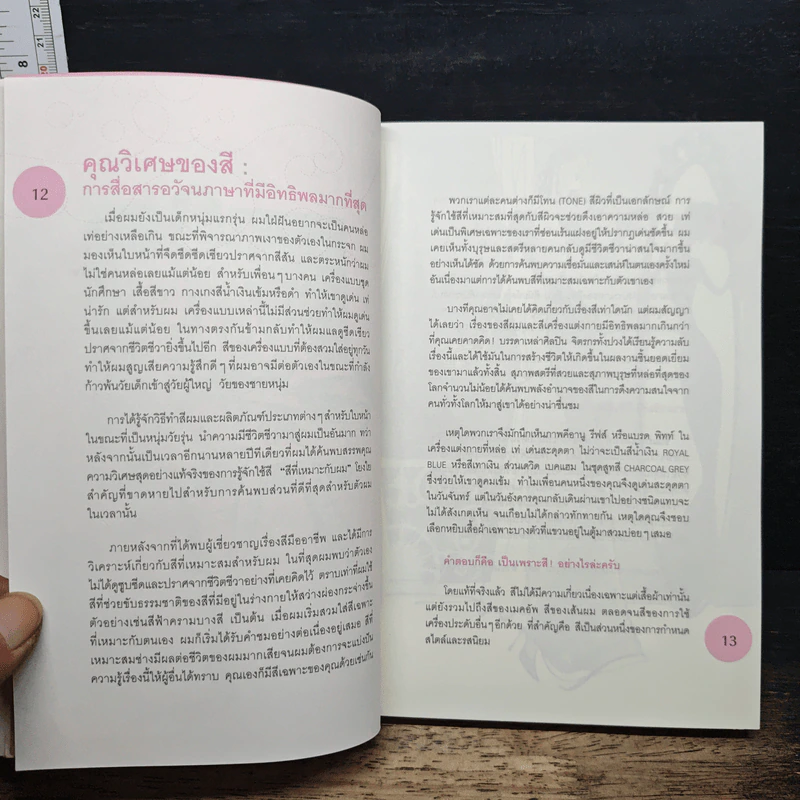 8
20
21
22
12
คุณวิเศษของสี :
การสื่อสารอวัจนภาษาที่มีอิทธิพลมากที่สุด
เมื่อผมยังเป็นเด็กหนุ่มแรกรุ่น ผมใฝ่ฝันอยากจะเป็นคนหล่อ
เท่อย่างเหลือเกิน ขณะที่พิจารณาภาพเงาของตัวเองในกระจก ผม
มองเห็นใบหน้าที่จืดชืดซีดเซียวปราศจากสีสัน และตระหนักว่าผม
ไม่ใช่คนหล่อเลยแม้แต่น้อย สำหรับเพื่อนๆ บางคน เครื่องแบบชุด
นักศึกษา เสื้อสีขาว กางเกงสีน้ำเงินเข้มหรือดำ ทำให้เขาดูเด่น เท่
น่ารัก แต่สำหรับผม เครื่องแบบเหล่านี้ไม่มีส่วนช่วยทำให้ผมดูเด่น
ขึ้นเลยแม้แต่น้อย ในทางตรงกันข้ามกลับทำให้ผมแลดูซีดเซียว
ปราศจากชีวิตชีวายิ่งขึ้นไปอีก สีของเครื่องแบบที่ต้องสวมใส่อยู่ทุกวัน
ทำให้ผมสูญเสียความรู้สึกดีๆ ที่ผมอาจมีต่อตัวเองในขณะที่กำลัง
ก้าวพ้นวัยเด็กเข้าสู่วัยผู้ใหญ่ วัยของชายหนุ่ม
การได้รู้จักวิธีทำสีผมและผลิตภัณฑ์ประเภทต่างๆ สำหรับใบหน้า
ในขณะที่เป็นหนุ่มวัยรุ่น นำความมีชีวิตชีวามาสู่ผมเป็นอันมาก ทว่า
หลังจากนั้นเป็นเวลาอีกนานหลายปีทีเดียวที่ผมได้ค้นพบสรรพคุณ
ความวิเศษสุดอย่างแท้จริงของการรู้จักใช้สี "สีที่เหมาะกับผม" โยงใย
สำคัญที่ขาดหายไปสำหรับการค้นพบส่วนที่ดีที่สุดสำหรับตัวผม
ในเวลานั้น
ภายหลังจากที่ได้พบผู้เชี่ยวชาญเรื่องสีมืออาชีพ และได้มีการ
วิเคราะห์เกี่ยวกับสีที่เหมาะสมสำหรับผม ในที่สุดผมพบว่าตัวเอง
ไม่ได้ดูซูบซีดและปราศจากชีวิตชีวาอย่างที่เคยคิดไว้ ตราบเท่าที่ผมใช้
สีที่ช่วยขับธรรมชาติของสีที่มีอยู่ในร่างกายให้สว่างผ่องกระจ่างขึ้น
ตัวอย่างเช่นสีฟ้าครามบางสี เป็นต้น เมื่อผมเริ่มสวมใส่สีเฉพาะ
ที่เหมาะกับตนเอง ผมก็เริ่มได้รับคำชมอย่างต่อเนื่องอยู่เสมอ สีที่
เหมาะสมช่างมีผลต่อชีวิตของผมมากเสียจนผมต้องการจะแบ่งปัน
ความรู้เรื่องนี้ให้ผู้อื่นได้ทราบ คุณเองก็มีสีเฉพาะของคุณด้วยเช่นกัน
พวกเราแต่ละคนต่างก็มีโทน (TONE) สีผิวที่เป็นเอกลักษณ์ การ
รู้จักใช้สีที่เหมาะสมที่สุดกับสีผิวจะช่วยดึงเอาความหล่อ สวย เท่
เด่นเป็นพิเศษเฉพาะของเราที่ซ่อนเร้นแฝงอยู่ให้ปรากฏเด่นชัดขึ้น ผม
เคยเห็นทั้งบุรุษและสตรีหลายคนกลับดูมีชีวิตชีวาน่าสนใจมากขึ้น
อย่างเห็นได้ชัด ด้วยการค้นพบความเชื่อมั่นและเสน่ห์ในตนเองครั้งใหม่
อันเนื่องมาแต่การได้ค้นพบสีที่เหมาะสมเฉพาะกับตัวเขาเอง
บางทีคุณอาจไม่เคยได้คิดเกี่ยวกับเรื่องสีเท่าใดนัก แต่ผมสัญญา
ได้เลยว่า เรื่องของสีผมและสีเครื่องแต่งกายมีอิทธิพลมากเกินกว่า
ที่คุณเคยคาดคิด! บรรดาเหล่าศิลปิน จิตรกรทั้งปวงได้เรียนรู้ความลับ
เรื่องนี้และได้ใช้มันในการสร้างชีวิตให้เกิดขึ้นในผลงานชิ้นยอดเยี่ยม
ของเขามาแล้วทั้งสิ้น สุภาพสตรีที่สวยและสุภาพบุรุษที่หล่อที่สุดของ
โลกจำนวนไม่น้อยได้ค้นพบพลังอำนาจของสีในการดึงความสนใจจาก
คนทั่วทั้งโลกให้มาสู่เขาได้อย่างน่าชื่นชม
เหตุใดพวกเราจึงมักนึกเห็นภาพคีอานู รีฟส์ หรือแบรด พิทท์ ใน
เครื่องแต่งกายที่หล่อ เท่ เด่นสะดุดตา ไม่ว่าจะเป็นสีน้ำเงิน ROYAL
BLUE หรือสีเทาเงิน ส่วนเดวิด เบคแฮม ในชุดสูทสี CHARCOAL GREY
ซึ่งช่วยให้เขาดูคมเข้ม ทำไมเพื่อนคนหนึ่งของคุณจึงดูเด่นสะดุดตา
ในวันจันทร์ แต่ในวันอังคารคุณกลับเดินผ่านเขาไปอย่างชนิดแทบจะ
ไม่ได้สังเกตเห็น จนเกือบไม่ได้กล่าวทักทายกัน เหตุใดคุณจึงชอบ
เลือกหยิบเสื้อผ้าเฉพาะบางตัวที่แขวนอยู่ในตู้มาสวมบ่อยๆ เสมอ
คำตอบก็คือ เป็นเพราะสี! อย่างไรล่ะครับ
โดยแท้ที่จริงแล้ว สีไม่ได้มีความเกี่ยวเนื่องเฉพาะแต่เสื้อผ้าเท่านั้น
แต่ยังรวมไปถึงสีของเมคอัพ สีของเส้นผม ตลอดจนสีของการใช้
เครื่องประดับอื่นๆ อีกด้วย ที่สำคัญคือ สีเป็นส่วนหนึ่งของการกำหนด
สไตล์และรสนิยม
13